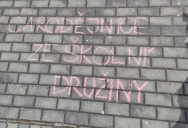 ČARODĚJNICE
ZE ŠKOLNÍ
DRUŽINY